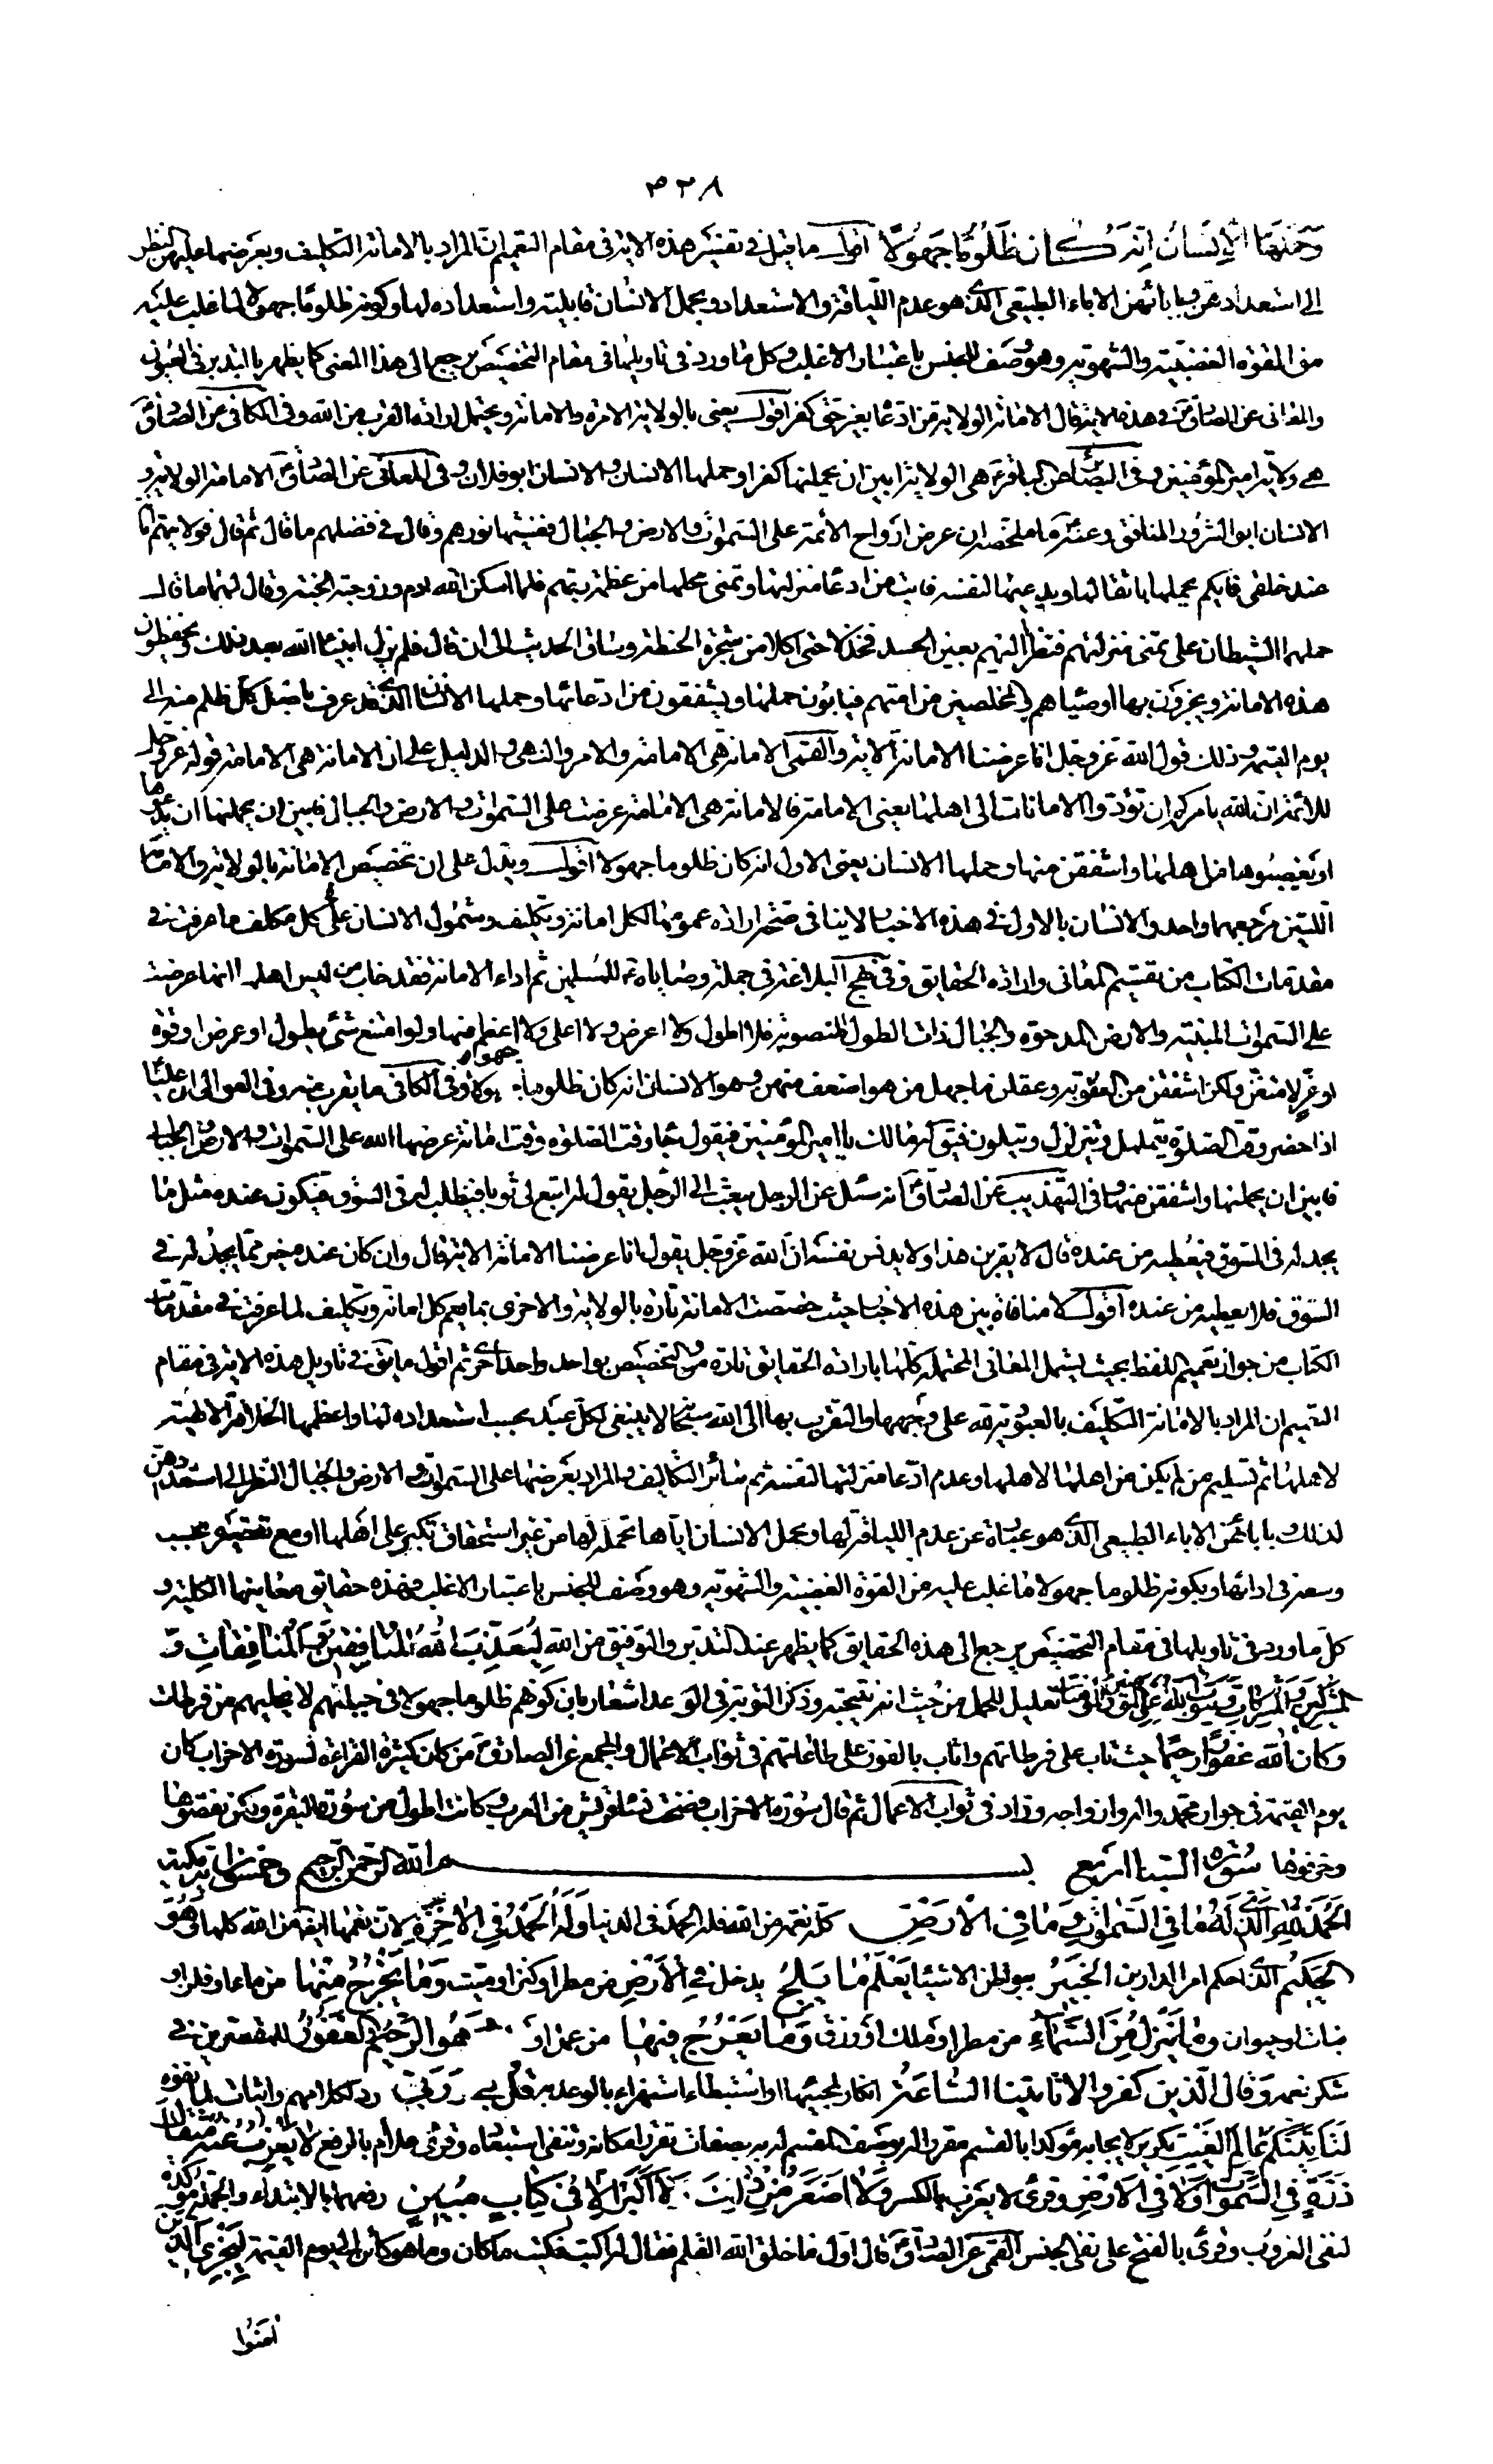 ٣٢٨
وَحَمَلَهَا الْإِنْسَانُ إِنَّهُ كَانَ ظَلُومًا جَهُولًا اقول ما قيل فى تفسير هذه الاية فى مقام التعميم ان المراد بالامانة التكليف وبعرضها عليهن النظر
الى استعدادهن وبابائهن الاباء الطبيعى الذى هو عدم اللياقة والاستعداد وبحمل الانسان قابليته واستعداده لها وكونه ظلوما جهولا لما غلب عليه
من القوة الغضبية والشهوية وهو وصف للجنس باعتبار الاغلب وكل ما ورد فى تاويلها فى مقام التخصيص يرجع الى هذا المعنى كما يظهر بالتدبر فى العيون
والمعانى عن الصادق ع فى هذه الاية قال الامانة الولاية من ادعاها بغير حق كفر اقول يعنى بالولاية الامرة والامانة ويحتمل ارادة القرب من الله وفى الكافى عن الصادق
هى ولاية امير المؤمنين وفى البصائر عن الباقر ع هى الولاية ابين ان يحملنها كفرا وحملها الانسان والانسان ابو فلان وفى المعانى عن الصادق الامانة الولاية و
الانسان ابو الشرور المنافق وعنه ع ما ملخصه ان عرض ارواح الائمة على السموات والارض والجبال فغشيها نورهم وقال فى فضلهم ما قال ثم قال فولايتهم امانة
عند خلقى فايكم يحملها باثقالها ويدعيها لنفسه فابت من ادعاء منزلتها وتمنى محلها من عظمة ربهم فلما اسكن الله ادم وزوجته الجنة وقال لهما ما قال
حملهما الشيطان على تمنى منزلتهم فنظرا اليهم بعين الحسد فخذلا حتى اكلا من شجرة الحنطة وساق الحديث الى ان قال فلم يزل انبياء الله بعد ذلك يحفظون
هذه الامانة ويخبرون بها اوصياءهم والمخلصين من اممهم فيابون حملها ويشفقون من ادعائها وحملها الانسان الذى قد عرف باصل كل ظلم منه الى
يوم القيمة وذلك قول الله عز وجل انا عرضنا الامانة الاية والقمى الامانة هى الامامة والامر والنهى والدليل على ان الامانة هى الامامة قوله عز وجل
للائمة ان الله يامركم ان تؤدوا الامانات الى اهلها يعنى الامامة فالامانة هى الامامة عرضت على السموات والارض والجبال فابين ان يحملنها ان يدعوها
او يغصبوها من اهلها واشفقن منها وحملها الانسان يعنى الاول انه كان ظلوما جهولا اقول ويدل على ان تخصيص الامانة بالولاية والامامة
اللتين مرجعهما واحد والانسان بالاول فى هذه الاخبار لا ينافى صحة ارادة عمومها لكل امانة وتكليف وشمول الانسان على كل مكلف ما عرفت فى
مقدمات الكتاب من تقسيم المعانى وارادة الحقايق وفى نهج البلاغة فى جملة وصاياه ع للمسلمين ثم اداء الامانة فقد خاب من ليس اهلها انها عرضت
على السموات المبنية والارض المدحوة والجبال ذات الطول المنصوبة فلا اطول ولا اعرض ولا اعلى ولا اعظم منها ولو امتنع شئ بطول او عرض او قوة
او عز لامتنعن ولكن اشفقن من العقوبة وعقلن ما جهل من هو اضعف منهن وهو الانسان انه كان ظلوما جهولا وفى الكافى ما يقرب منه وفى العوالى ان عليا
اذا حضر وقت الصلوة يتململ ويتزلزل ويتلون فيق له مالك يا امير المؤمنين فيقول جاء وقت الصلوة وقت امانة عرضها الله على السموات والارض والجبال
فابين ان يحملنها واشفقن منها وفى التهذيب عن الصادق انه سئل عن الرجل يبعث الى الرجل يقول له ابتع لى ثوبا فيطلب له فى السوق فيكون عنده مثل ما
يجد له فى السوق فيعطيه من عنده قال لا يقربن هذا ولا يدنس نفسه ان الله عز وجل يقول انا عرضنا الامانة الاية قال وان كان عنده خير مما يجد له فى
السوق فلا يعطيه من عنده اقول لا منافاة بين هذه الاخبار حيث خصصت الامانة تارة بالولاية والاخرى بما يعم كل امانة وتكليف لما عرفت فى مقدمات
الكتاب من جواز تعميم اللفظ بحيث يشمل المعانى المحتملة كلها بارادة الحقايق تارة والتخصيص بواحد واحد اخرى ثم اقول ما يق فى تاويل هذه الاية فى مقام
التعميم ان المراد بالامانة التكليف بالعبودية لله على وجهها والتقرب بها الى الله سبحانه كما ينبغى لكل عبد بحسب استعداده لها واعظمها الخلافة الالهية
لاهلها ثم تسليم من لم يكن من اهلها لاهلها وعدم ادعاء منزلتها لنفسه ثم سائر التكاليف والمراد بعرضها على السموات والارض والجبال النظر الى استعدادهن
لذلك وبابائهن الاباء الطبيعى الذى هو عبارة عن عدم اللياقة لها وبحمل الانسان اياها تحمله لها من غير استحقاق تكبرا على اهلها او مع تقصيره بحسب
وسعه فى ادائها وبكونه ظلوما جهولا ما غلب عليه من القوة الغضبية والشهوية وهو وصف للجنس باعتبار الاغلب فهذه حقايق معانيها الكلية و
كل ما ورد فى تاويلها فى مقام التخصيص يرجع الى هذه الحقايق كما يظهر عند التدبر والتوفيق من الله لِيُعَذِّبَ اللَّهُ الْمُنَافِقِينَ وَالْمُنَافِقَاتِ وَ
الْمُشْرِكِينَ وَالْمُشْرِكَاتِ وَيَتُوبَ اللَّهُ عَلَى الْمُؤْمِنِينَ وَالْمُؤْمِنَاتِ تعليل للحمل من حيث انه نتيجته وذكر التوبة فى الوعد اشعار بان كونهم ظلوما جهولا فى جبلتهم لا يخليهم من فرطات
وَكَانَ اللَّهُ غَفُورًا رَحِيمًا حيث تاب على فرطاتهم واثاب بالفوز على طاعاتهم فى ثواب الاعمال والمجمع عن الصادق ع من كان كثير القراءة لسورة الاحزاب كان
يوم القيمة فى جوار محمد واله وازواجه وزاد فى ثواب الاعمال ثم قال سورة الاحزاب فضحت نساء قريش من العرب وكانت اطول من سورة البقرة ولكن نقصوها
وحرفوها سورة السبا اربع بسم الله الرحمن الرحيم وخمسون اية مكية
الْحَمْدُ لِلَّهِ الَّذِي لَهُ مَا فِي السَّمَوَاتِ وَمَا فِي الْأَرْضِ كله نعمة من الله فله الحمد فى الدنيا وَلَهُ الْحَمْدُ فِي الْآخِرَةِ لان نعمها ايضا من الله كلها وَهُوَ
الْحَكِيمُ الذى احكم امر الدارين الْخَبِيرُ ببواطن الاشياء يَعْلَمُ مَا يَلِجُ يدخل فِي الْأَرْضِ من مطر او كنز او ميت وَمَا يَخْرُجُ مِنْهَا من ماء او فلز او
نبات او حيوان وَمَا يَنْزِلُ مِنَ السَّمَاءِ من مطر او ملك او رزق وَمَا يَعْرُجُ فِيهَا من عمل او وَهُوَ الرَّحِيمُ الْغَفُورُ للمقصرين فى
شكر نعمه وَقَالَ الَّذِينَ كَفَرُوا لَا تَأْتِينَا السَّاعَةُ انكار لمجيئها او استبطاء استهزاء بالوعد به قُلْ بَلَى وَرَبِّي رد لكلامهم واثبات لما نفوه
لَتَأْتِيَنَّكُمْ عَالِمِ الْغَيْبِ تكرير لايجابه مؤكدا بالقسم مقررا له بوصف المقسم به بصفات تقرر امكانه وتنفى استبعاده وقرئ علام بالرفع لَا يَعْزُبُ عَنْهُ مِثْقَالُ
ذَرَّةٍ فِي السَّمَوَاتِ وَلَا فِي الْأَرْضِ وقرئ لا يعزب بالكسر وَلَا أَصْغَرُ مِنْ ذَلِكَ وَلَا أَكْبَرُ إِلَّا فِي كِتَابٍ مُبِينٍ رفعهما بالابتداء والجملة مؤكدة
لنفى العزوب وقرئ بالفتح على نفى الجنس القمى عن الصادق ع قال اول ما خلق الله القلم فقال له اكتب فكتب ما كان وما هو كائن الى يوم القيمة لِيَجْزِيَ الَّذِينَ
آمَنُوا